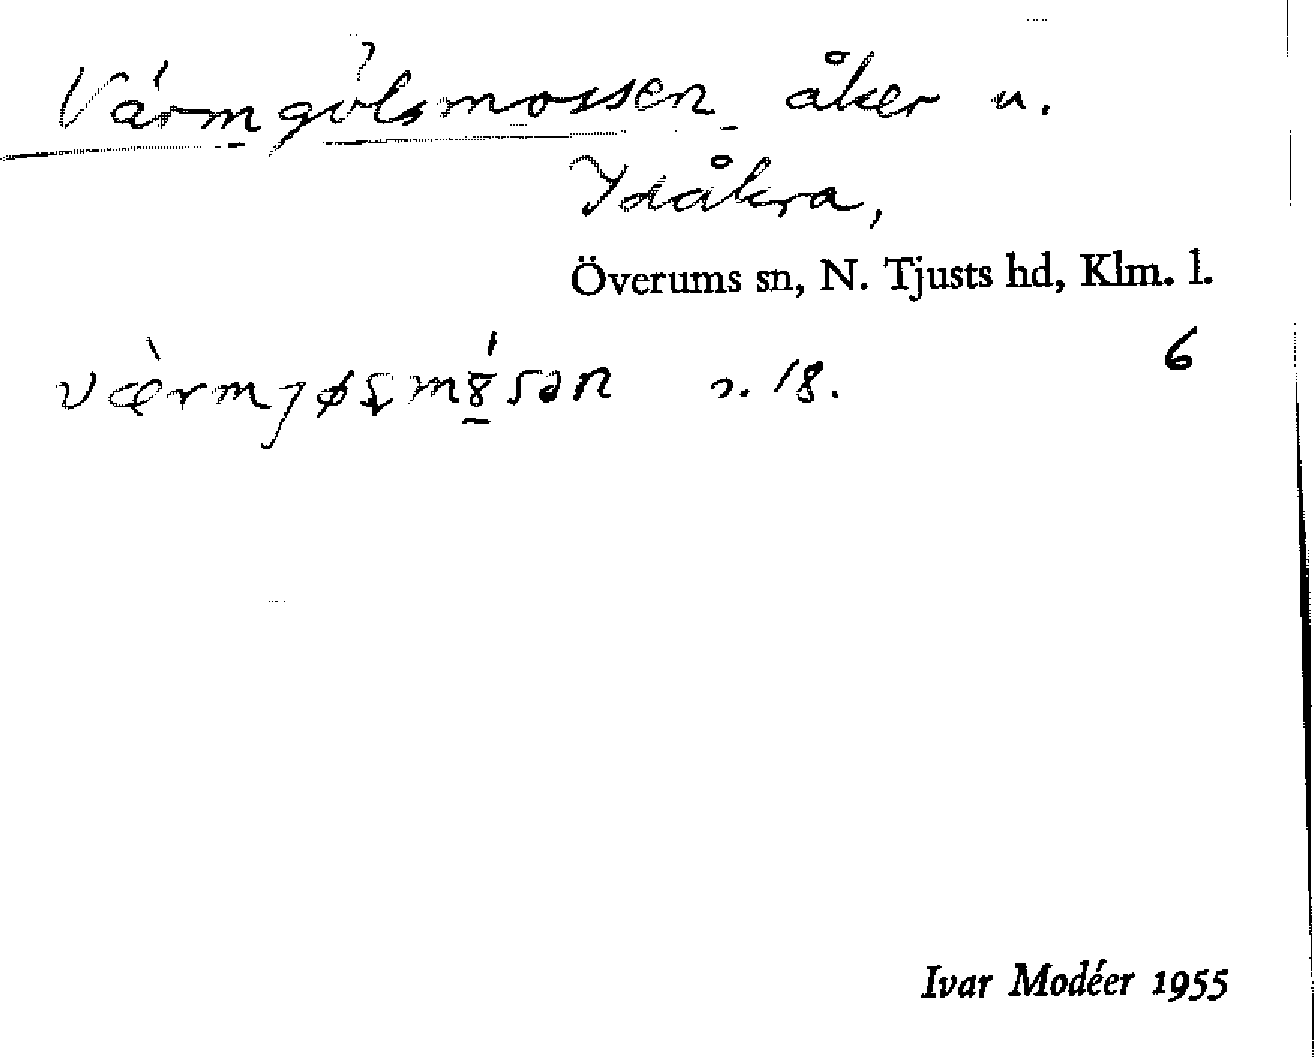 Värmgölsmossen åker u.
Ydåkra,
Överums sn, N. Tjusts hd, Klm. l.
6
s. 18.
Ivar Modéer 1955